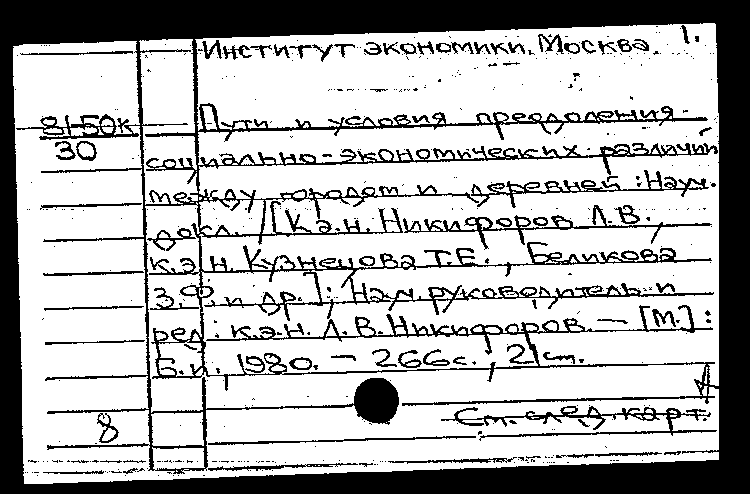 Институт экономики. Москва. 1.
81-50к Пути и условия преодоления
30 социально-экономических различий
между городом и деревней: Науч.
докл. / [К.э.н. Никифоров Л.В.,
к.э.н. Кузнецова Т.Е., Беликова
З.Ф. и др.]; Науч. руководитель и
ред.: к.э.н. Л.В. Никифоров. — [М.]:
Б.и., 1980. – 266 с.; 21 см.
См. след. карт.
8